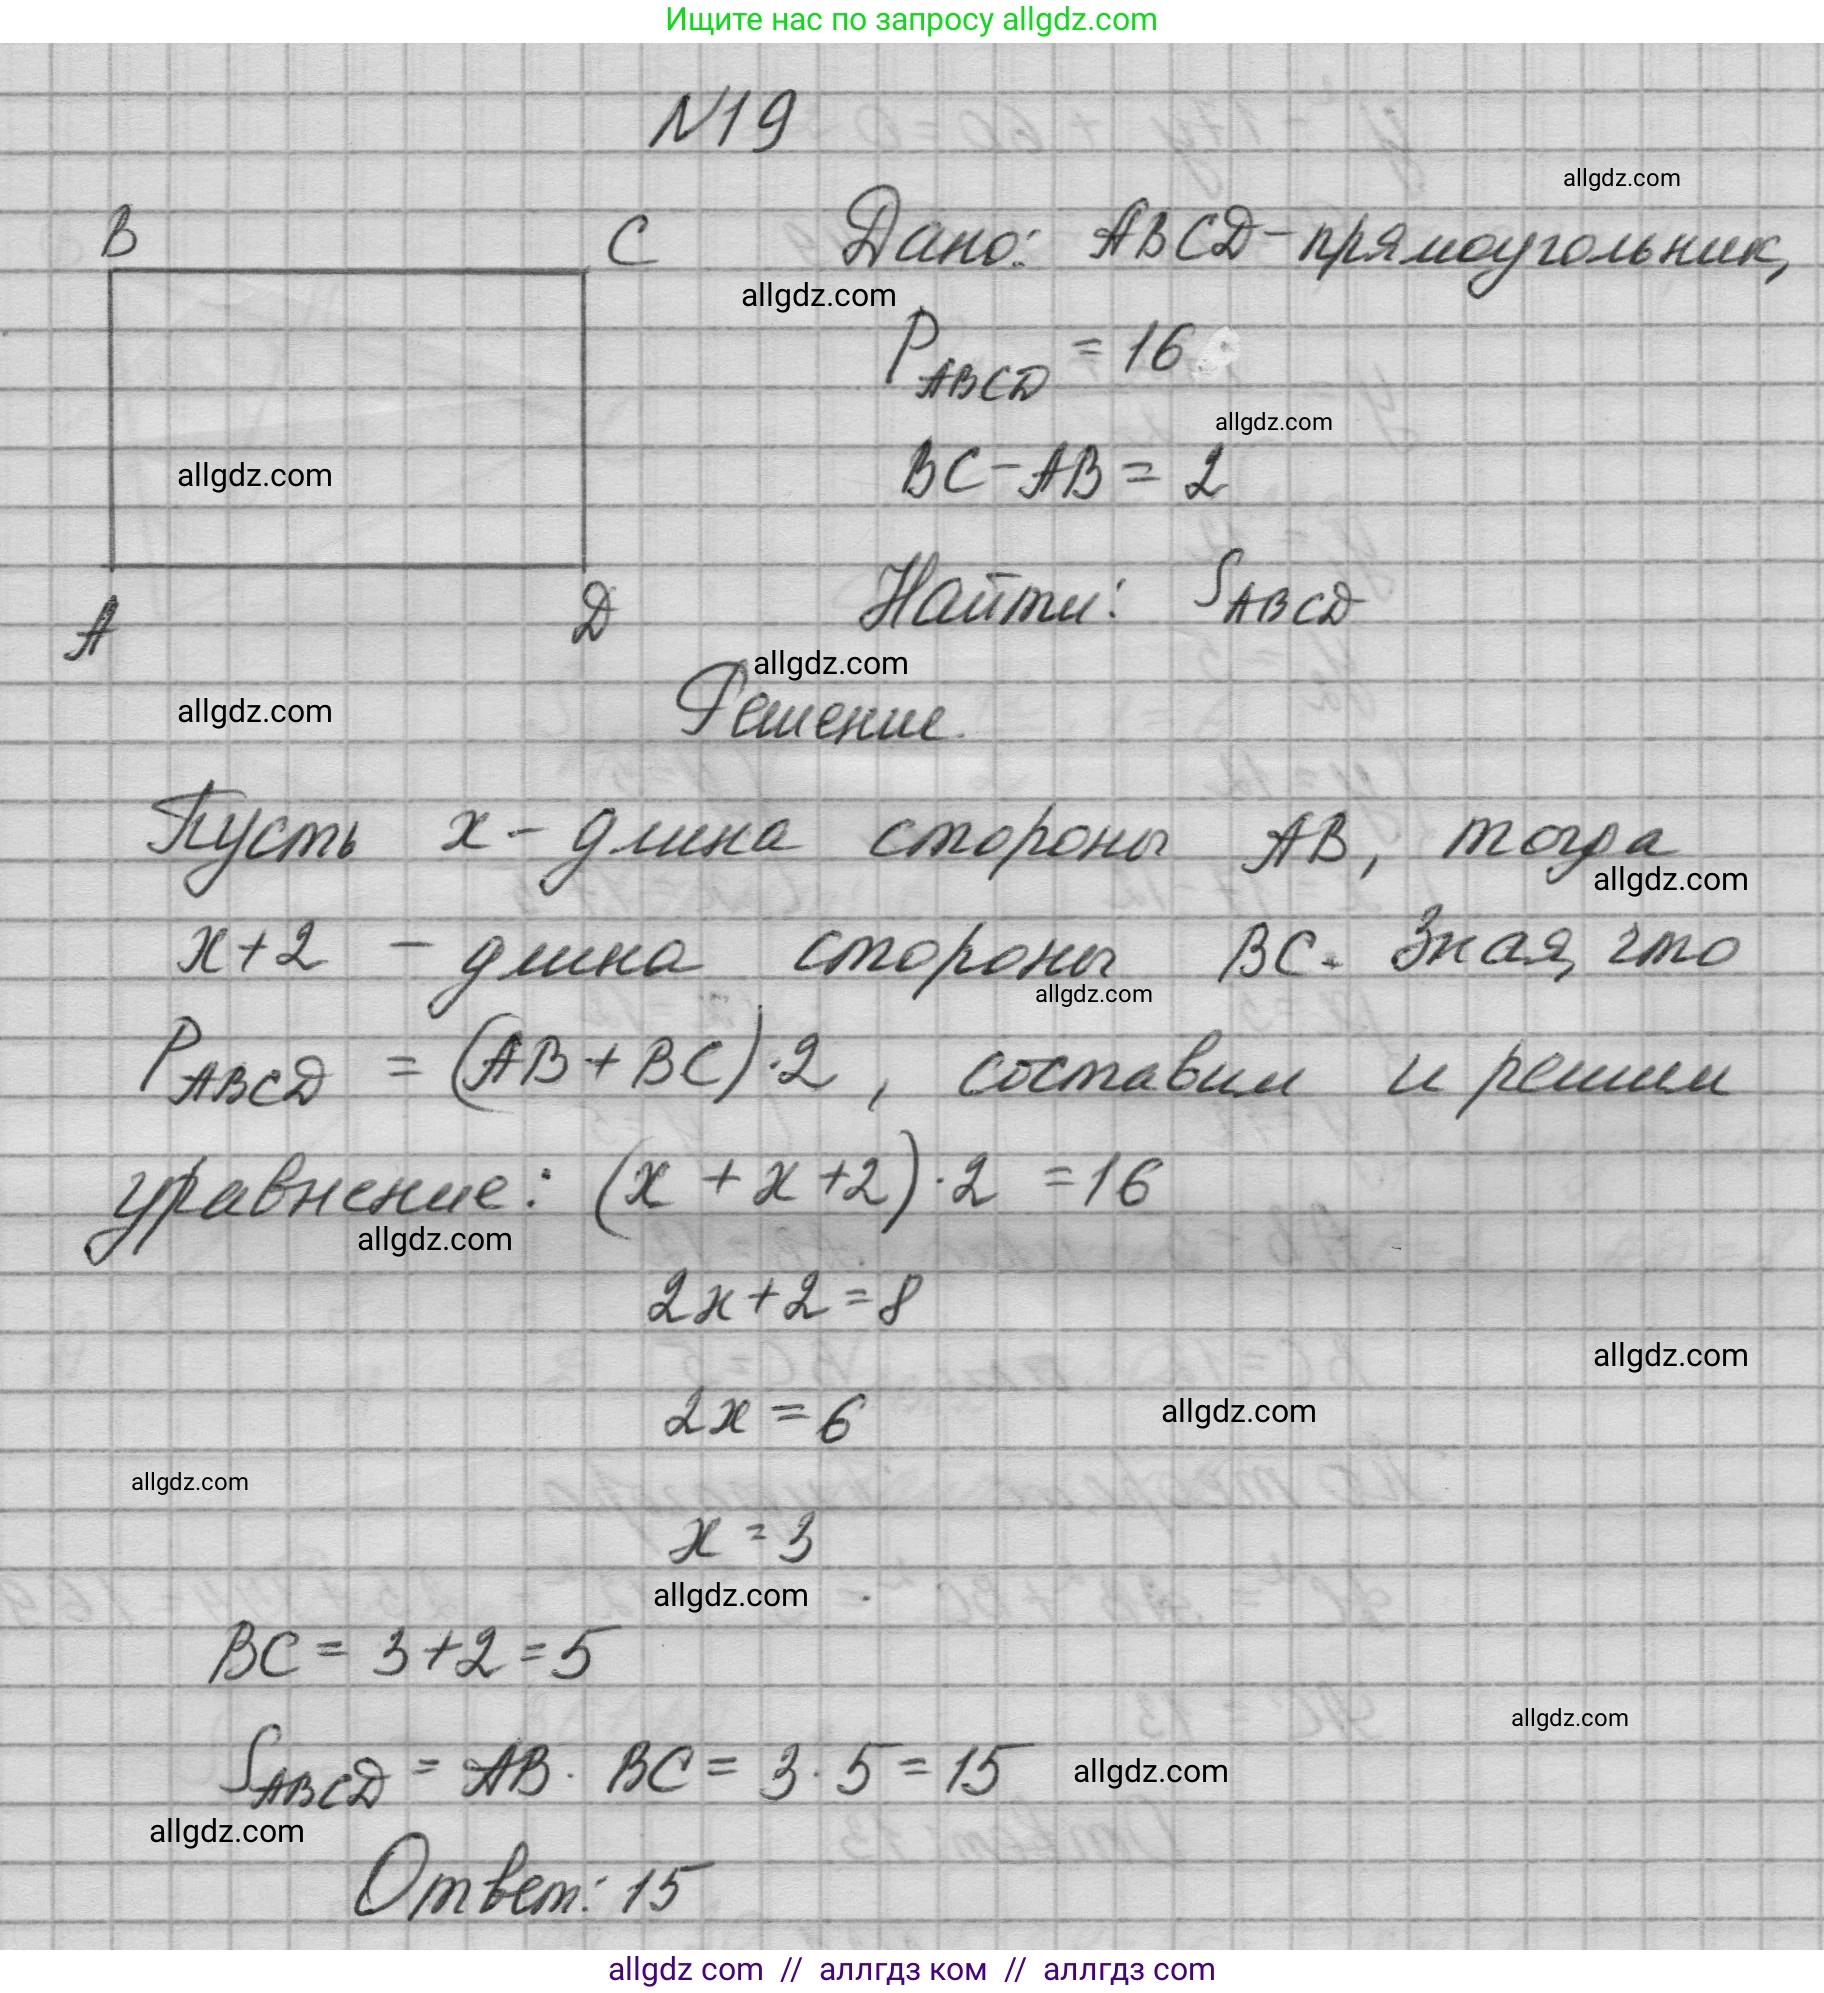 Ищите нас по запросу allgdz.com
N19
allgdz.com
B
C
Дано: ABCD-прямоугольник,
allgdz.com
P_ABCD = 16
allgdz.com
allgdz.com
BC-AB = 2
A
D
Найти: S_ABCD
allgdz.com
allgdz.com
Решение.
Пусть x - длина стороны AB, тогда
allgdz.com
x+2 - длина стороны BC. Зная, что
allgdz.com
P_ABCD = (AB+BC)·2, составим и решим
уравнение: (x + x +2)·2 =16
allgdz.com
2x+2=8
allgdz.com
2x=6
allgdz.com
allgdz.com
x=3
allgdz.com
BC = 3+2=5
allgdz.com
S_ABCD = AB · BC = 3·5=15
allgdz.com
allgdz.com
Ответ: 15
allgdz com // аллгдз ком // аллгдз com